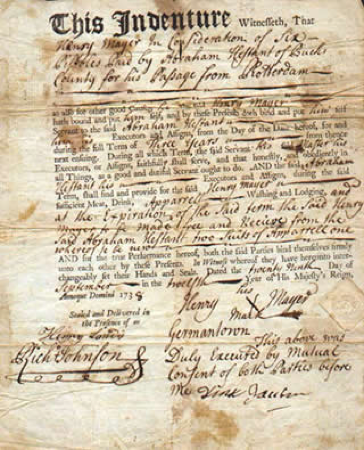 This Indenture Witnesseth, That
Henry Mayer In Consideration of Six
Pistoles Paid by Abraham Hestant of Bucks
County for his Passage from Rotterdam
as also for other good Causes Henry Mayer
hath bound and put him self, and by these Presents doth bind and put him self
Servant to the said Abraham Hestant
Executors and Assigns, from the Day of the Date hereof, for and
during the full Term of Three Years
next ensuing. During all which Term, the said Servant his
Executors, or Assigns, faithfully shall serve, and that honestly, and obediently in
all Things, as a good and dutiful Servant ought to do. AND the said Abraham
Hestant his Executors and Assigns, during the said
Term, shall find and provide for the said Henry Mayer
sufficient Meat, Drink, Apparel Washing and Lodging, and
at the Expiration of the Said term the Said Henry
Mayer to be made free and Recieve from the
Said Abraham Hestant two Suits of Apparrel one
whereof to be new
AND for the true Performance hereof, both the said Parties bind themselves firmly
unto each other by these Presents. In Witness whereof they have hereunto inter-
changeably set their Hands and Seals. Dated the twenty Ninth Day of
September in the twelfth Year of His Majesty's Reign,
Annoque Domini 1738
Henry X Mayer
Mark
Sealed and Delivered in
the Presence of us
Rich Johnson
Germantown
This above was
Duly Executed by Mutual
Consent of both Parties before
Me